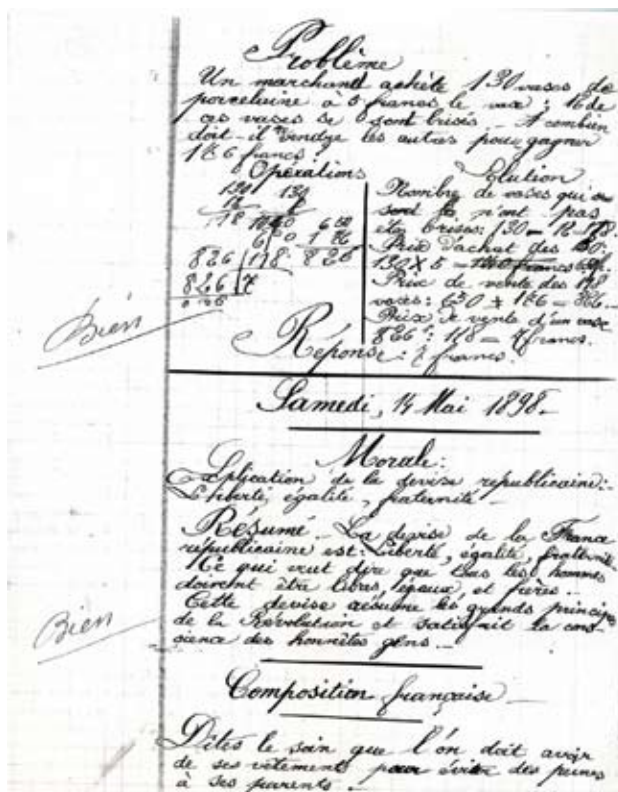 Problème
Un marchand achète 130 vases de
porcelaine à 5 francs le vase ; 12 de
ces vases se sont brisés _ A combien
doit-il vendre les autres pour gagner
176 francs.
Opérations
130 130
12
118
650
176
826 118 826
826 7
Solution
Nombre de vases qui
sont n'ont pas
étés brisés: 130 - 12 = 118.
Prix d'achat des 130:
130 X 5 =
Prix de vente des 118
vases: 650 + 176 = 826.
Prix de vente d'un vase
826f: 118 = 7 francs.
Réponse : 7 francs.
Bien
Samedi, 14 Mai 1898._
Morale:
Explication de la devise républicaine:
Liberté, égalité, fraternité _
Résumé _ La devise de la France
républicaine est: Liberté, égalité, fraternité.
Ce qui veut dire que tous les hommes
doivent être libres, égaux, et frères._
Cette devise résume les grands principes
de la Révolution et satisfait la cons-
cience des honnêtes gens._
Bien
Composition française _
Dites le soin que l'on doit avoir
de ses vêtements pour éviter des peines
à ses parents._